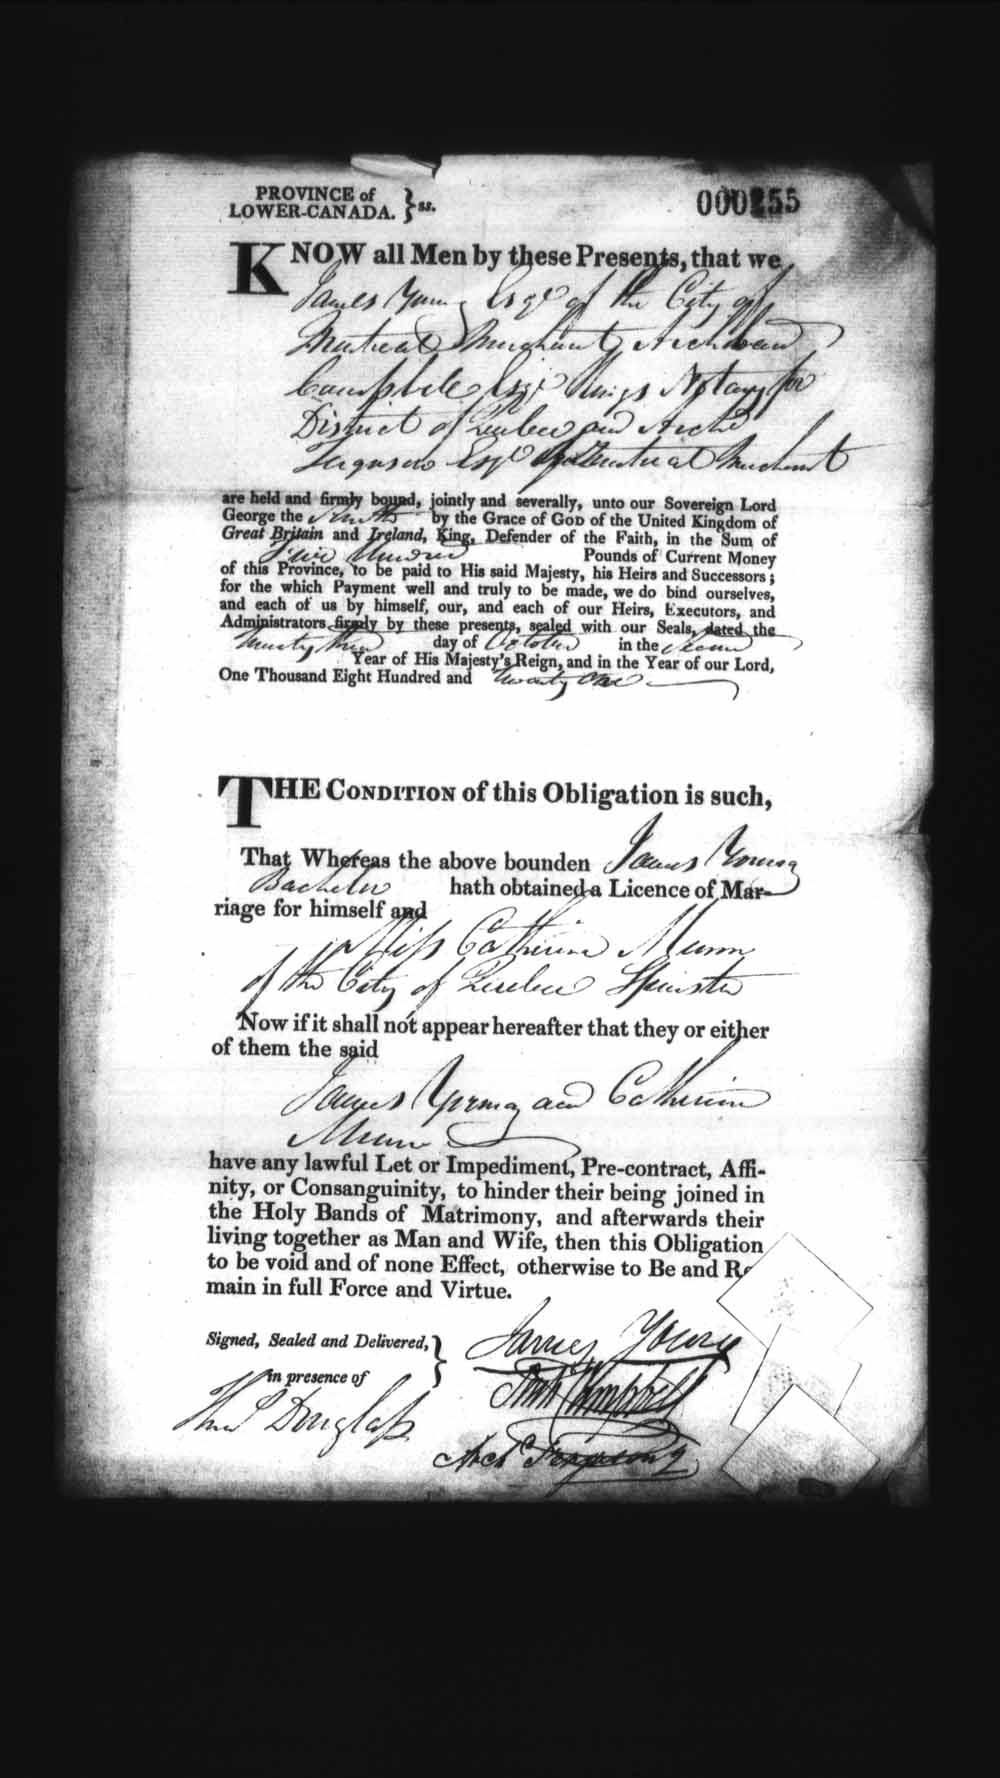 PROVINCE of
LOWER-CANADA. } ss.
000255
KNOW all Men by these Presents, that we
James Young Esqr of the City of
Montreal Merchant, Archibald
Campbell Esqr Kings Notary for
District of Quebec and Archd
Ferguson Esqr of Montreal Merchant
are held and firmly bound, jointly and severally, unto our Sovereign Lord
George the Fourth by the Grace of GOD of the United Kingdom of
Great Britain and Ireland, King, Defender of the Faith, in the Sum of
Hundred Pounds of Current Money
of this Province, to be paid to His said Majesty, his Heirs and Successors;
for the which Payment well and truly to be made, we do bind ourselves,
and each of us by himself, our, and each of our Heirs, Executors, and
Administrators firmly by these presents, sealed with our Seals, dated the
Twenty third day of October in the Second
Year of His Majesty's Reign, and in the Year of our Lord,
One Thousand Eight Hundred and twenty one
THE CONDITION of this Obligation is such,
That Whereas the above bounden James Young
Bachelor hath obtained a Licence of Mar-
riage for himself and
Miss Catherine Munn
of the City of Quebec Spinster
Now if it shall not appear hereafter that they or either
of them the said
James Young and Catherine
Munn
have any lawful Let or Impediment, Pre-contract, Affi-
nity, or Consanguinity, to hinder their being joined in
the Holy Bands of Matrimony, and afterwards their
living together as Man and Wife, then this Obligation
to be void and of none Effect, otherwise to Be and Re
main in full Force and Virtue.
Signed, Sealed and Delivered, }
in presence of
James Young
Arch Campbell
Thos Douglass
Archd Ferguson